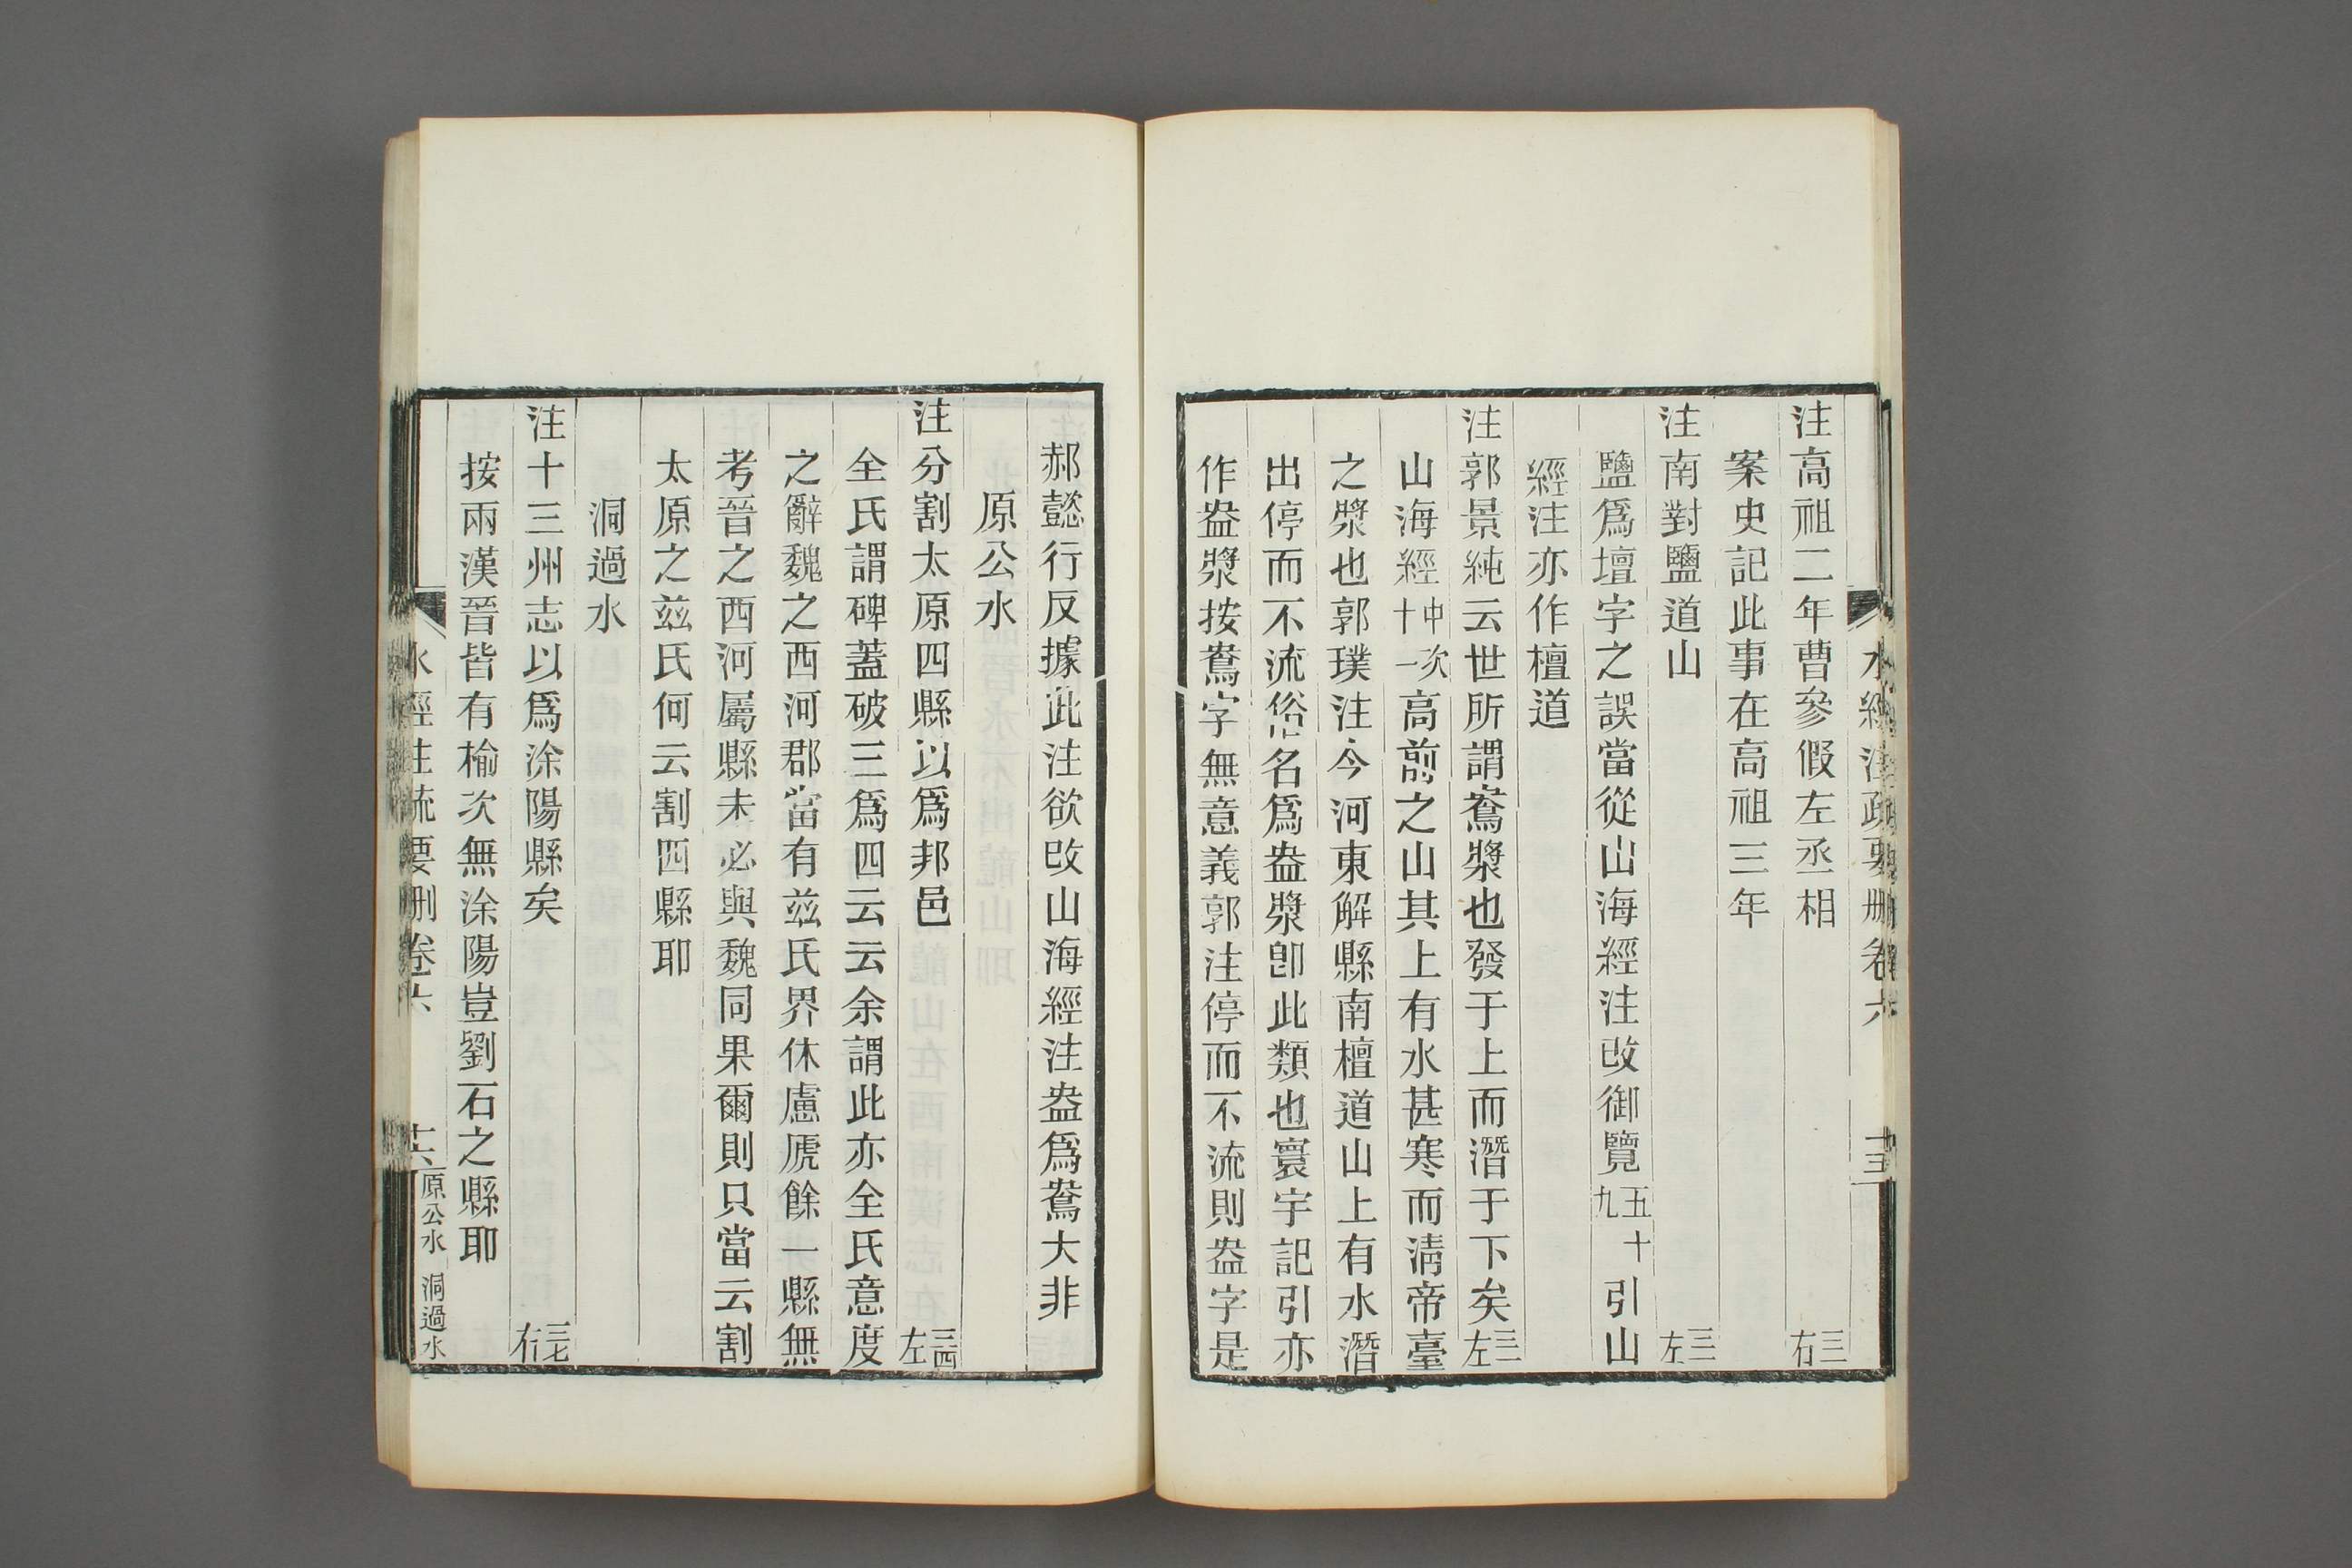 水經注疏要刪卷六
十三
注高祖二年曹參假左丞相 三一右
案史記此事在高祖三年
注南對鹽道山 三一左
鹽爲壇字之誤當從山海經注改御覽五十九引山
經注亦作檀道
注郭景純云世所謂鴦漿也發于上而潛于下矣 三一左
山海經中次十一高前之山其上有水甚寒而淸帝臺
之漿也郭璞注今河東解縣南檀道山上有水潛
出停而不流俗名爲盎漿卽此類也寰宇記引亦
作盎漿按鴦字無意義郭注停而不流則盎字是
郝懿行反據此注欲改山海經注盎爲鴦大非
原公水
注分割太原四縣以爲邦邑 三四左
全氏謂碑蓋破三爲四云云余謂此亦全氏意度
之辭魏之西河郡當有茲氏界休慮虒餘一縣無
考晉之西河屬縣未必與魏同果爾則只當云割
太原之茲氏何云割四縣耶
洞過水
注十三州志以爲涂陽縣矣 三七右
按兩漢晉皆有榆次無涂陽豈劉石之縣耶
水經注疏要刪卷六
十六
原公水 洞過水